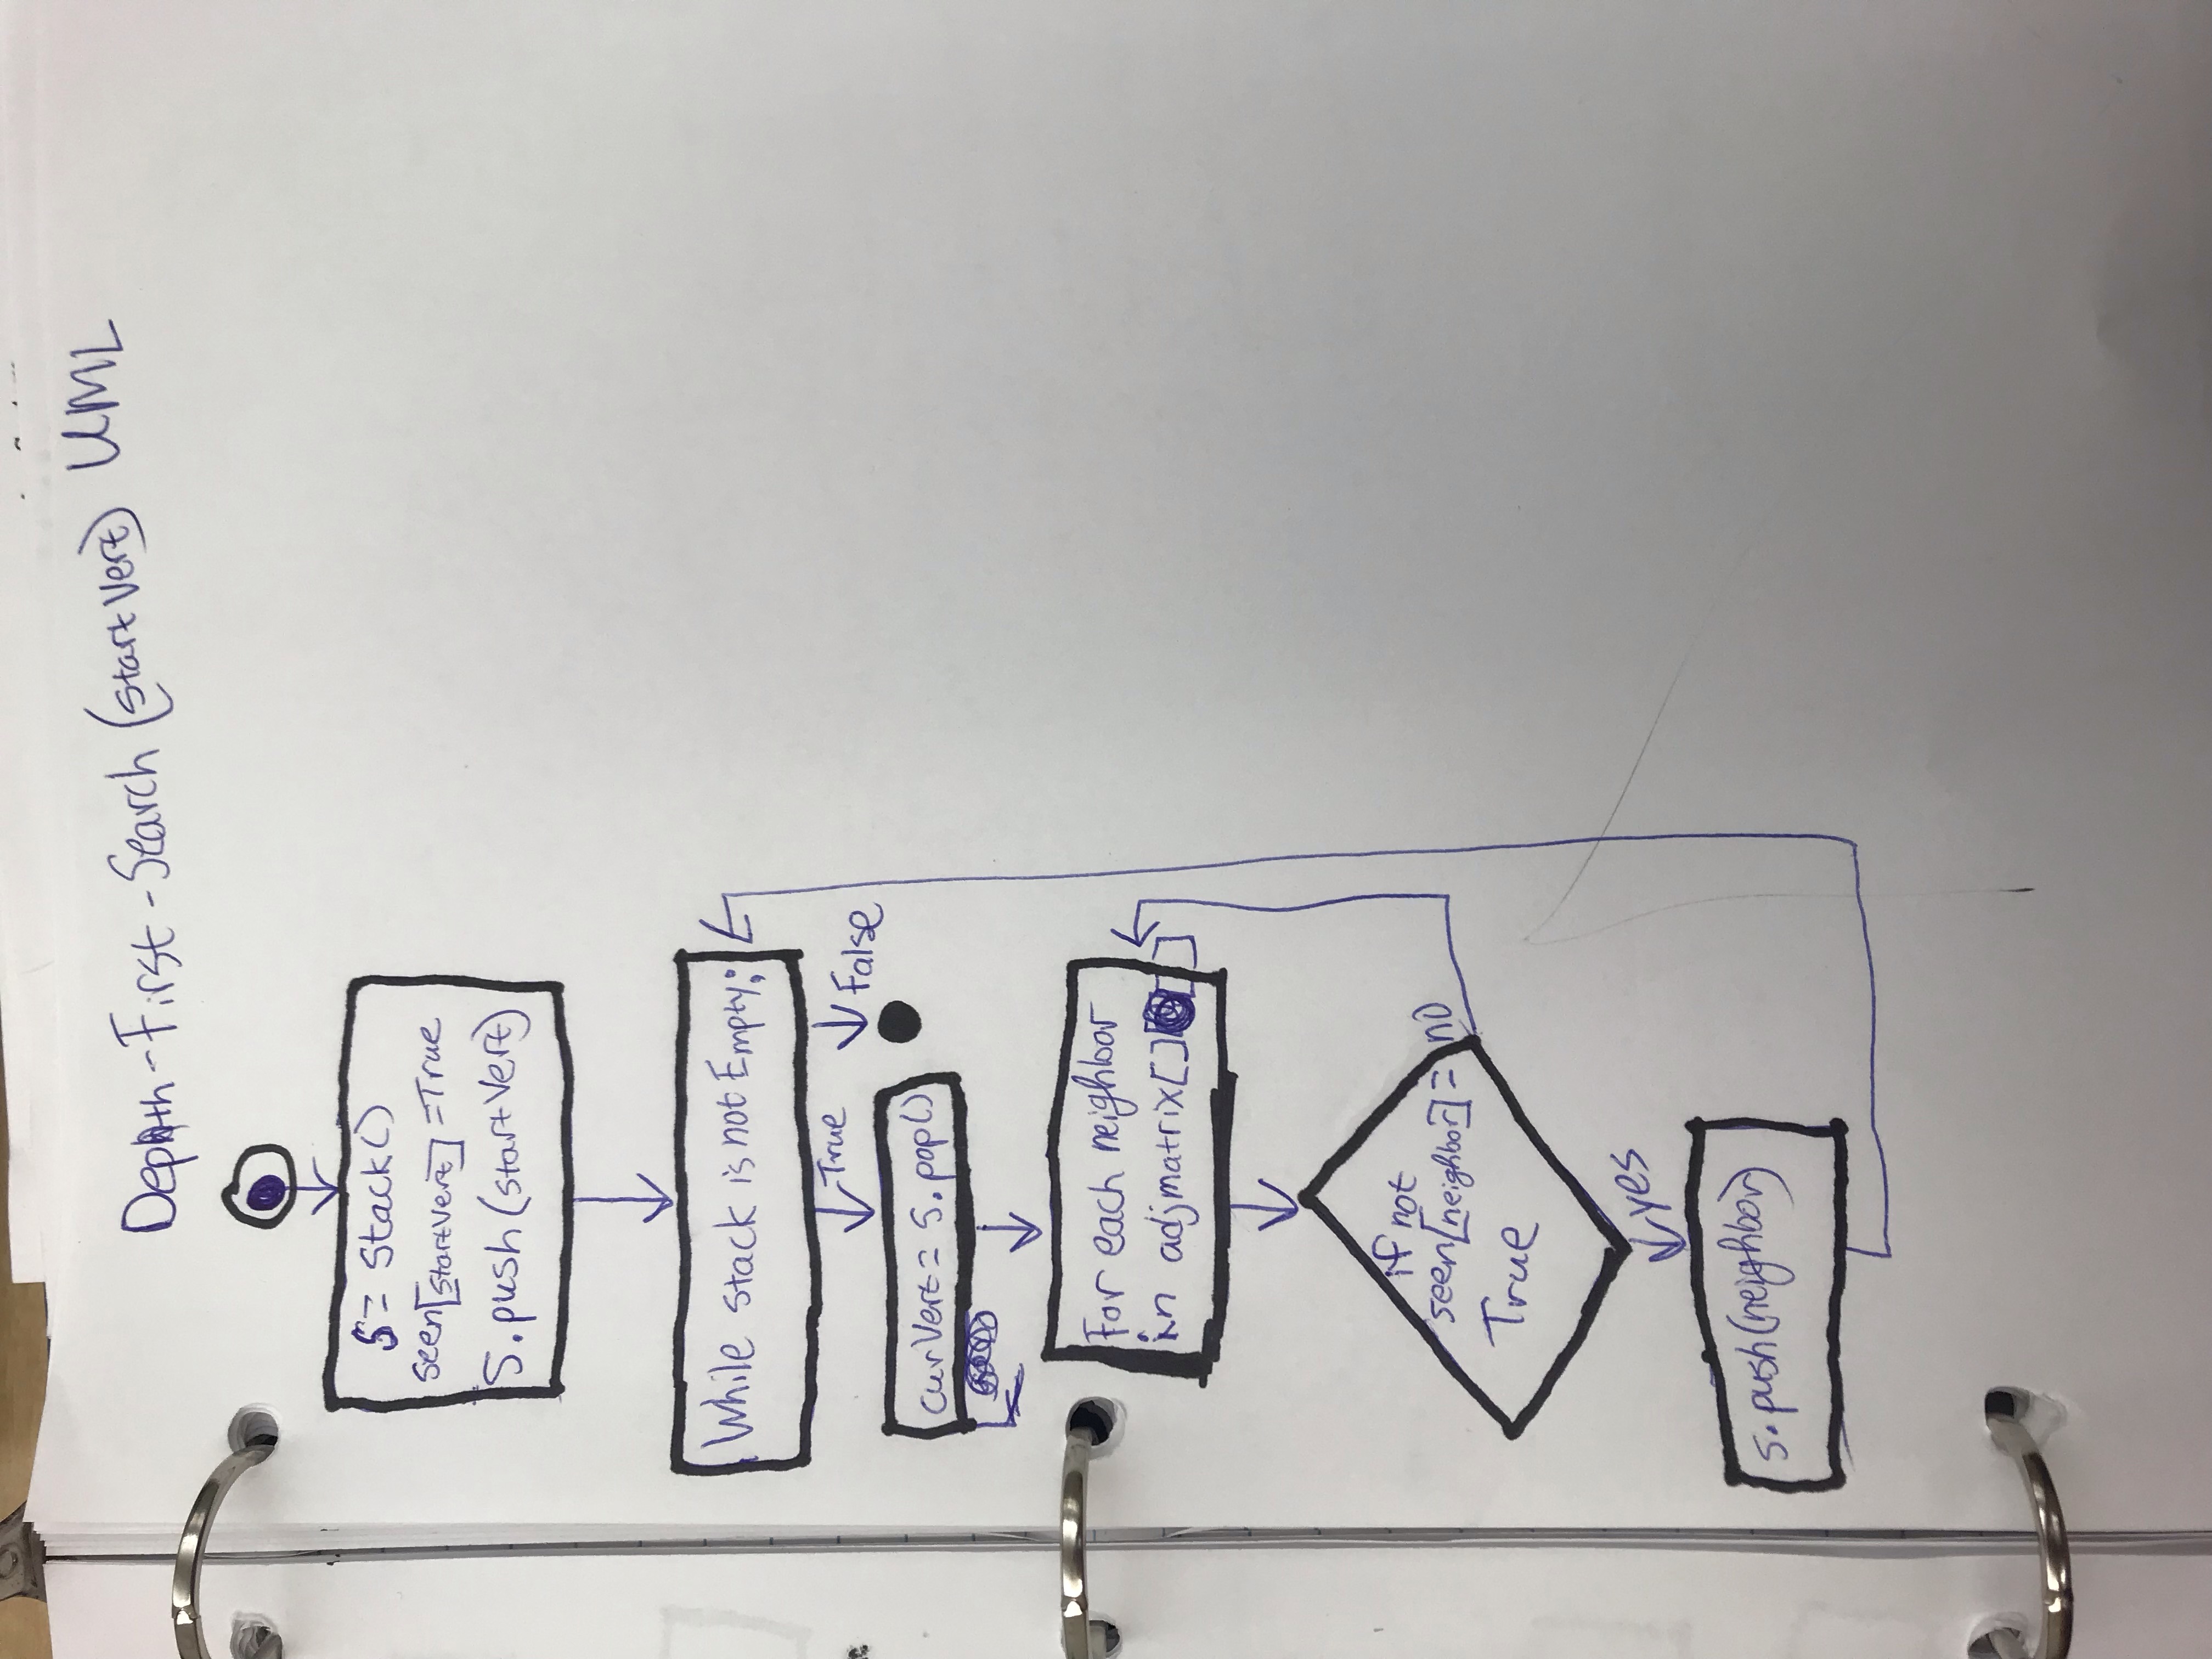 Depth-First-Search (startVert) UML
S = Stack()
seen[startVert] = True
S.push(startVert)
While stack is not Empty:
True
False
curVert = S.pop()
For each neighbor
in adjmatrix[][]
if not
seen[neighbor] =
True
no
yes
S.push(neighbor)